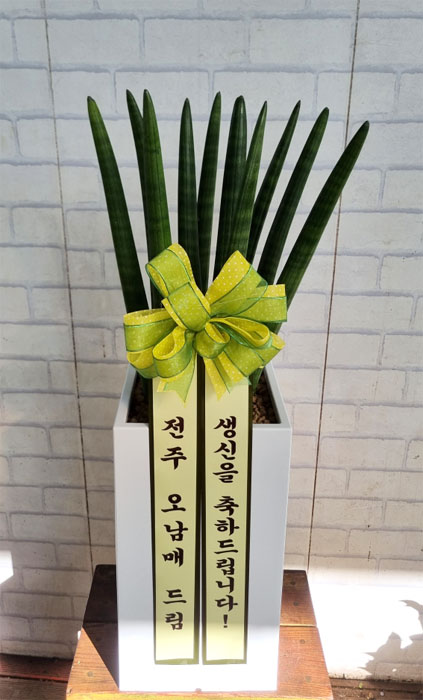 생신을 축하드립니다!
전주 오남매 드림